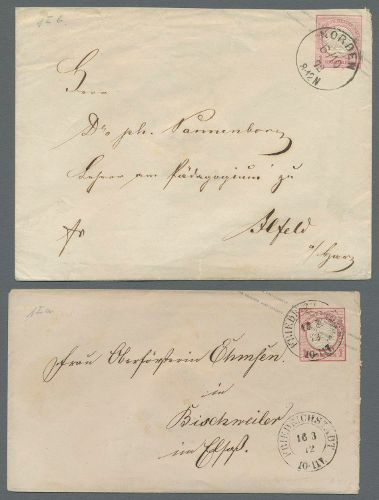 1 I b
NORDEN
8-12 N
Herrn
Dr. ph. Pannenborg
Lehrer am Pädagogium zu
Ilfeld
a/Harz
fr
1 I a
FRIEDR
10-11V.
Frau Oberförsterin Ehmsen
in
Bischweiler
im Elsaß.
FRIEDRICHSTADT
16 3
72
10-11V.